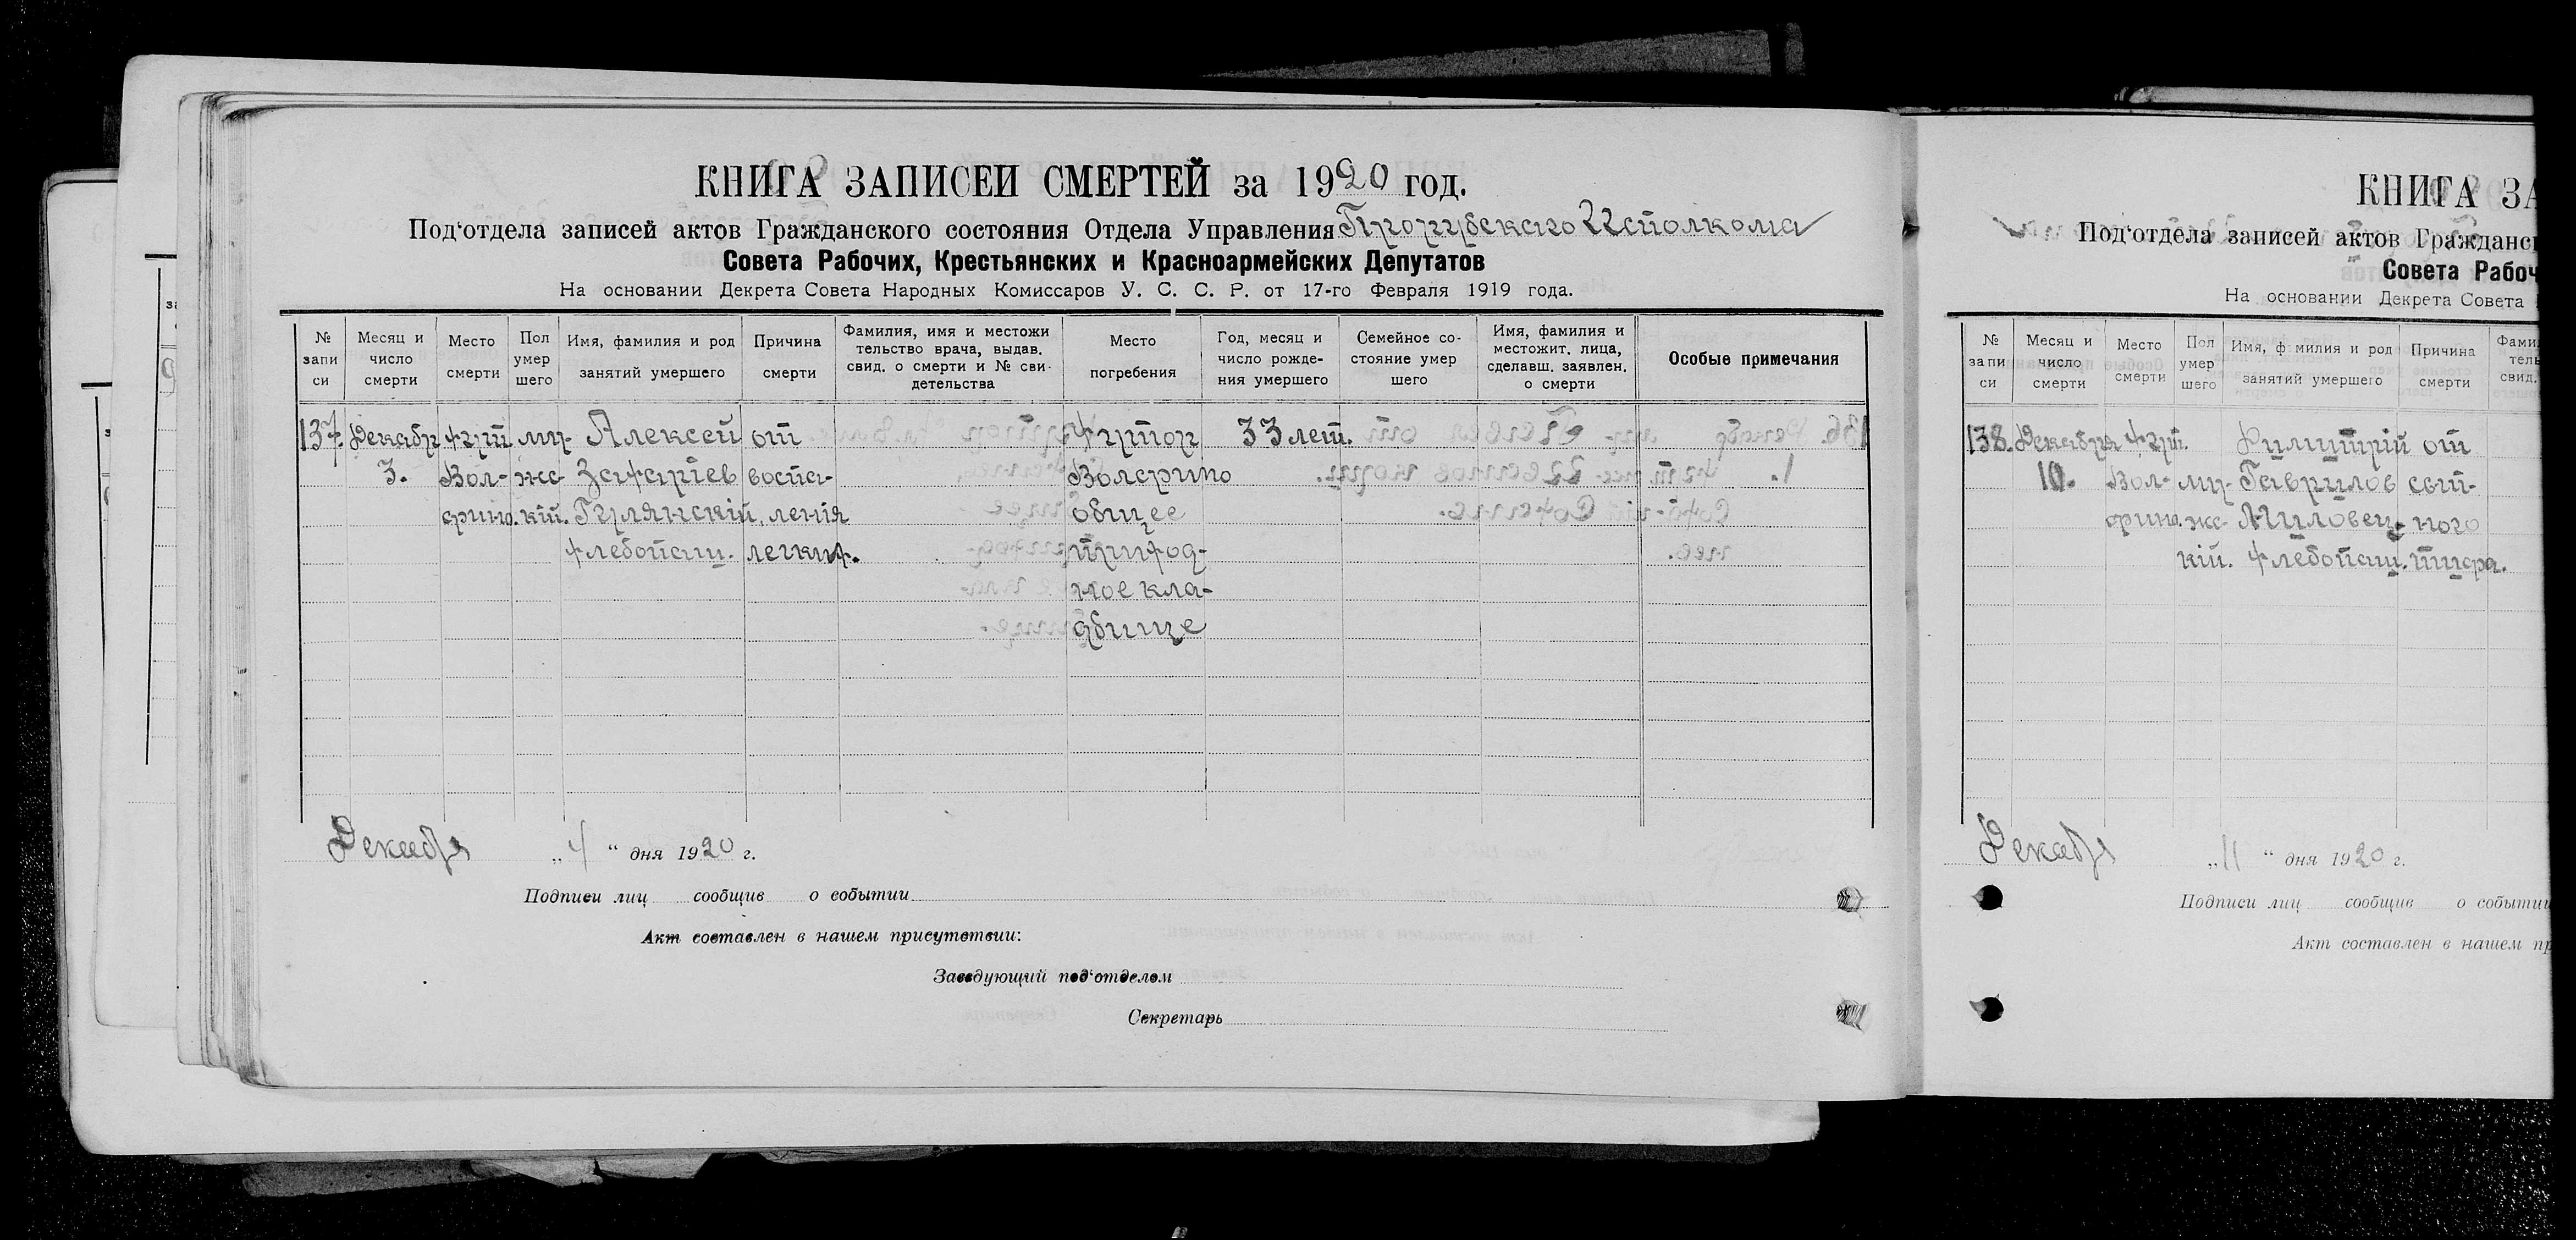 КНИГА ЗАПИСЕЙ СМЕРТЕЙ за 1920 год.
Под'отдела записей актов Гражданского состояния Отдела Управления Исполкома
Совета Рабочих, Крестьянских и Красноармейских Депутатов
На основании Декрета Совета Народных Комиссаров У. С. С. Р. от 17-го Февраля 1919 года.
№ запи си
Месяц и число смерти
Место смерти
Пол умер шего
Имя, фамилия и род занятий умершего
Причина смерти
Фамилия, имя и местожи тельство врача, выдав. свид. о смерти и № сви- детельства
Место погребения
Год, месяц и число рожде- ния умершего
Семейное со- стояние умер шего
Имя, фамилия и местожит. лица, сделавш. заявлен. о смерти
Особые примечания
137. Декабр хут. му- Алексей от Хутор 33 лет.
3. Вол- жс- Захаріев воспа-
кій. Гулянскій, ленія общее
хлебопаш. легких. приход-
ное кла-
дбище
Декабря „4“ дня 1920 г.
Подписи лиц сообщив о событии
Акт составлен в нашем присутствии:
Заведующий под'отделом
Секретарь
КНИГА ЗА
Под'отдела записей актов Гражданс
Совета Рабоч
На основании Декрета Совета
№ запи си
Месяц и число смерти
Место смерти
Пол умер шего
Имя, ф милия и род занятий умершего
Причина смерти
Фами тель свид.
138. Декабря хут. Димитрій от
10. Вол- му- Гаврилов сып-
жс- Миловец- ного
кій. хлебопаш. тифа.
Декабря „11“ дня 1920 г.
Подписи лиц сообщив о событии
Акт составлен в нашем пр